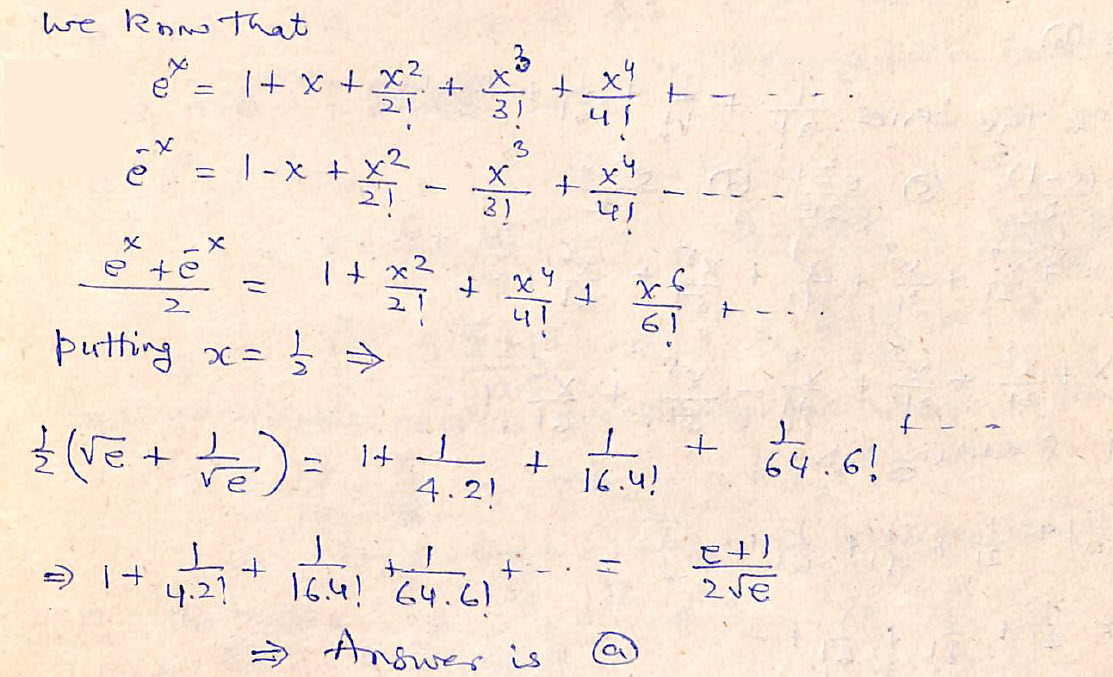 We know that
e^x = 1 + x + x^2/2! + x^3/3! + x^4/4! + - - - .
e^-x = 1 - x + x^2/2! - x^3/3! + x^4/4! - - - - .
(e^x + e^-x)/2 = 1 + x^2/2! + x^4/4! + x^6/6! + - . . .
putting x = 1/2 ⇒
1/2 (√e + 1/√e) = 1 + 1/4.2! + 1/16.4! + 1/64.6! + - - -
⇒ 1 + 1/4.2! + 1/16.4! + 1/64.6! + - . . = e+1/2√e
⇒ Answer is ⓐ